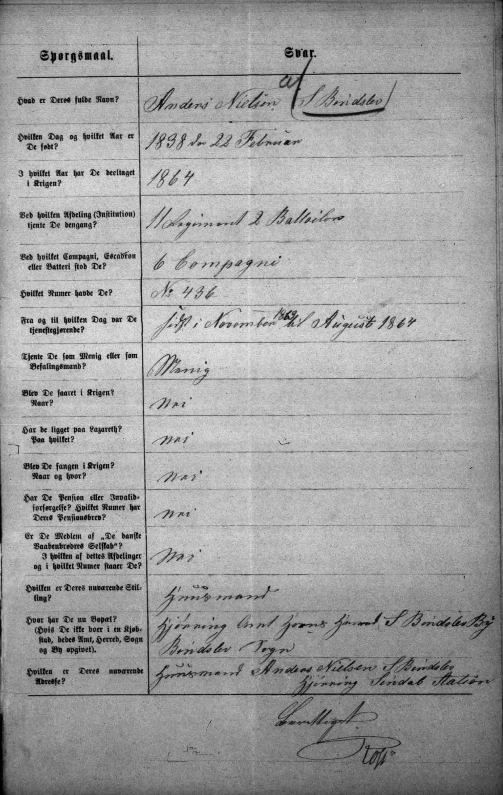 Spørgsmaal. Svar.
Hvad er Deres fulde Navn? Anders Nielsen af S Bindslev
Hvilken Dag og hvilket Aar er
De født? 1838 den 22 Februar
I hvilket Aar har De deeltaget
i Krigen? 1864
Ved hvilken Afdeling (Institution)
tjente De dengang? 11 Regiment 2 Batteilon
Ved hvilket Compagni, Escadron
eller Batteri stod De? 6 Compagni
Hvilket Numer havde De? No 436
Fra og til hvilken Dag var De
tjenestegjørende? sidst i November 1863 til August 1864
Tjente De som Menig eller som
Befalingsmand? Menig
Blev De saaret i Krigen?
Naar? Nei
Har De ligget paa Lazareth?
Paa hvilket? Nei
Blev De fangen i Krigen?
Naar og hvor? Nei
Har De Pension eller Invalid-
forsørgelse? Hvilket Numer har
Deres Pensionsbrev? Nei
Er De Medlem af „De danske
Vaabenbrødres Selskab“?
I hvilken af dettes Afdelinger
og i hvilket Numer staaer De? Nei
Hvilken er Deres nuværende Stil-
ling? Huusmand
Hvor har De nu Bopæl?
(Hvis De ikke boer i en Kjøb-
stad, bedes Amt, Herred, Sogn
og By opgivet). Hjørring Amt Horns Herred S Bindslev By
Bindslev Sogn
Hvilken er Deres nuværende
Adresse? Huusmand Anders Nielsen S Bindslev
Hjørring Sindal Station